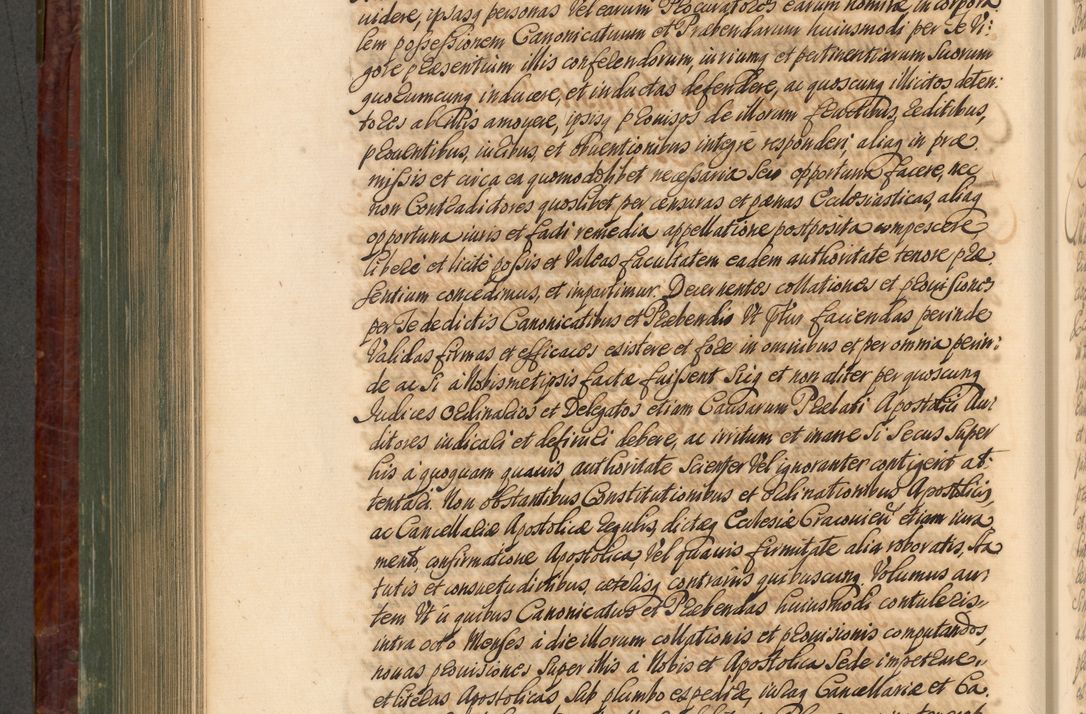 uidere, ipsasq personas Vel earum Procuratores earum nomine in corpora
lem possessionem Canonicatuum et Præbendarum huiusmodi per Te Vi:
gore præsentium illis conferendorum, iuriumq et pertinentiarum suorum
quorumcunq inducere, et inductas defendere, ac quoscunq illicitos deten:
tores ab illis amouere, ipsisq prouisos de illorum fructibus, redditibus,
prouentibus, iuribus, et obuentionibus integre responderi, aliaq in præ
missis et circa ea quomodolibet necessaria seu opportuna facere, nec
non Contradictores quoslibet per censuras et pænas Ecclesiasticas, aliaq
opportuna iuris et facti remedia appellatione postposita compescere
libere et licite possis et Valeas facultatem eadem authoritate tenore præ
sentium concedimus, et impartimur. Decernentes collationes et prouisiones
per Te de dictis Canonicatibus et Præbendis Vt pfur faciendas perinde
Validas firmas et efficaces existere et fore in omnibus et per omnia perin:
de ac si a Nobismetipsis factæ fuissent Sicq et non aliter per quoscunq
Judices ordinarios et Delegatos etiam Causarum Palatii Apostolici Au:
ditores iudicari et definiri debere, ac irritum et inane si secus super
his a quoquam quauis authoritate scienter Vel ignoranter contigerit at:
tentari. Non obstantibus Constitutionibus et ordinationibus Apostolicis,
ac Cancellariæ Apostolicæ regulis, dictæq Ecclesiæ Cracouien etiam iura
mento, confirmatione Apostolica, Vel quauis firmitate alia roboratis, sta
tutis et consuetudinibus, cæterisq contrariis quibuscunq. Volumus au:
tem Vt ii quibus Canonicatus et Præbendas huiusmodi contuleris
intra octo Menses a die illorum collationis et prouisionis computandos,
nouas prouisiones super illis a Nobis et Apostolica Sede impetrare,
et literas Apostolicas sub plumbo expedire, iuraq Cancellariæ et Ca